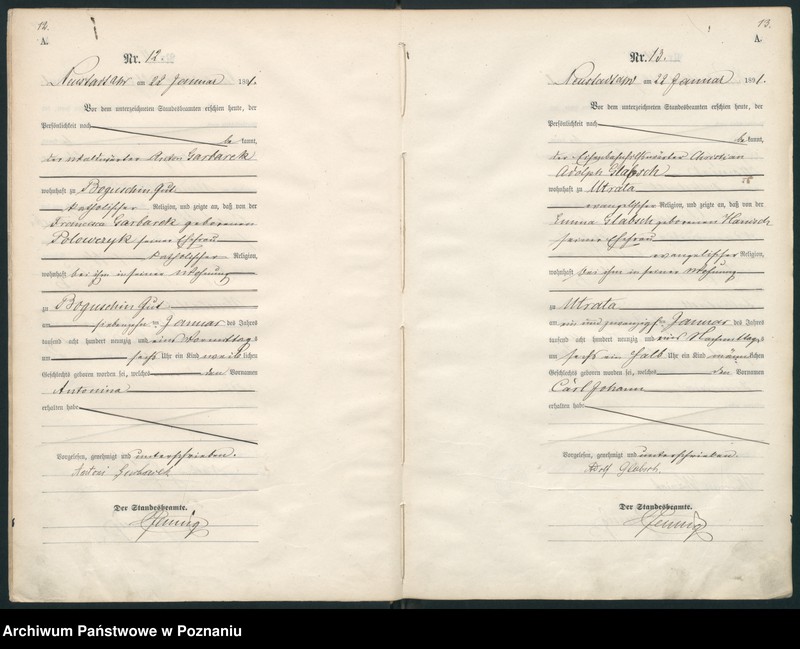 12.
A.
Nr. 12.
Neustadt a/W am 22 Januar 1891.
Vor dem unterzeichneten Standesbeamten erschien heute, der
Persönlichkeit nach
be kannt,
der Anton Garbarek
wohnhaft zu Boguschin Gut
katholischer Religion, und zeigte an, daß von der
Francisca Garbarek geborenen
Polowczyk seiner Ehefrau
katholischer Religion,
wohnhaft bei ihm in seiner Wohnung
zu Boguschin Gut
am siebenzehn ten Januar des Jahres
tausend acht hundert neunzig und eins Vormittags
um sechs Uhr ein Kind weib lichen
Geschlechts geboren worden sei, welches den Vornamen
Antonina
erhalten habe
Vorgelesen, genehmigt und unterschrieben.
Antoni
Der Standesbeamte.
13.
A.
Nr. 13.
Neustadt a/W am 22 Januar 1891.
Vor dem unterzeichneten Standesbeamten erschien heute, der
Persönlichkeit nach
be kannt,
der Christian
Adolph Glabsch
wohnhaft zu Utrata
evangelischer Religion, und zeigte an, daß von der
Emma Glabsch geborenen Hanisch
seiner Ehefrau
evangelischer Religion,
wohnhaft bei ihm in seiner Wohnung
zu Utrata
am ein und zwanzigs ten Januar des Jahres
tausend acht hundert neunzig und eins Nachmittags
um sechs ein halb Uhr ein Kind männ lichen
Geschlechts geboren worden sei, welches den Vornamen
Carl Johann
erhalten habe
Vorgelesen, genehmigt und unterschrieben.
Adolf Glabsch.
Der Standesbeamte.
Archiwum Państwowe w Poznaniu